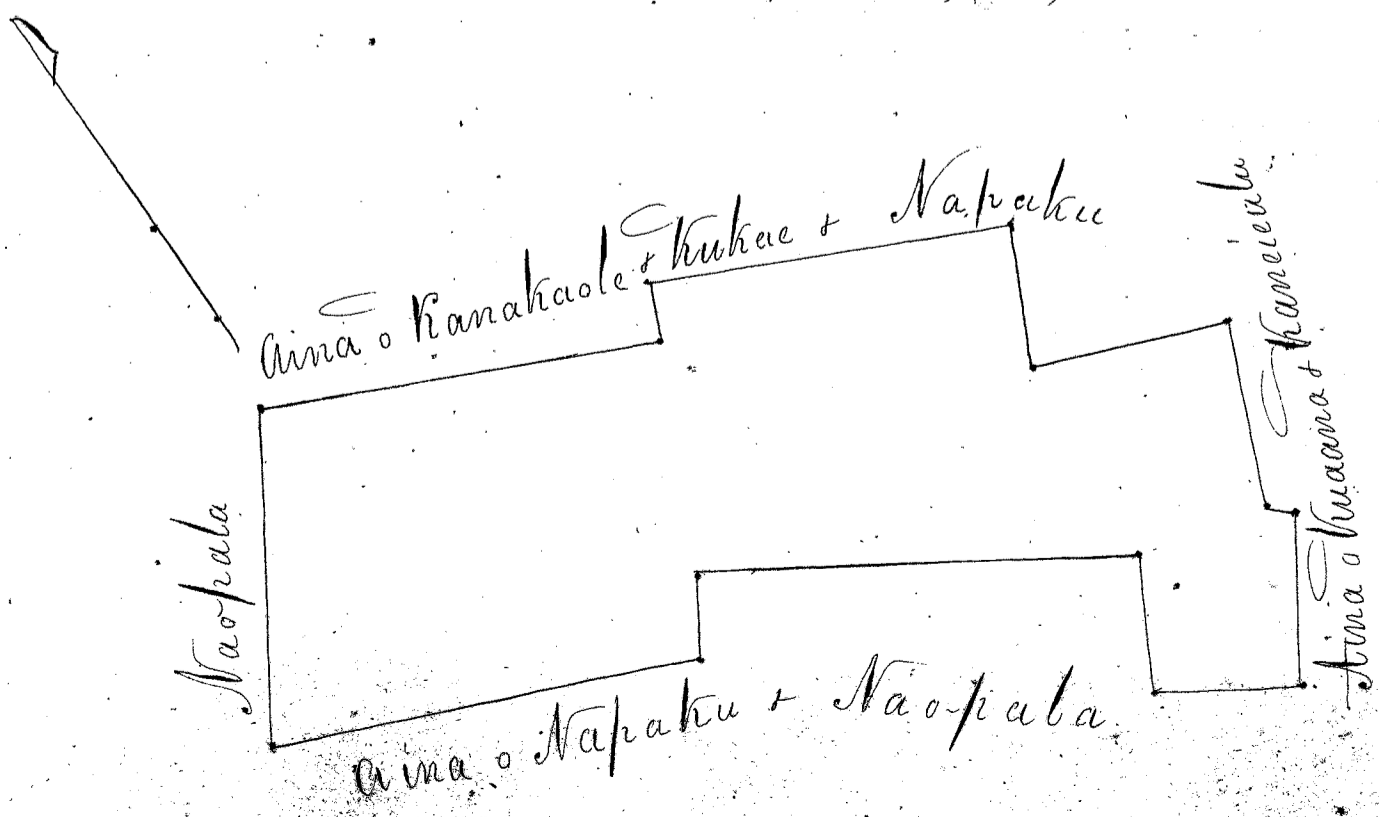 aina o Kanakaole & Kukae & Napaku
Aina o Kuaana & Kaneiealu
Naopala
aina o Napaku & Naopala